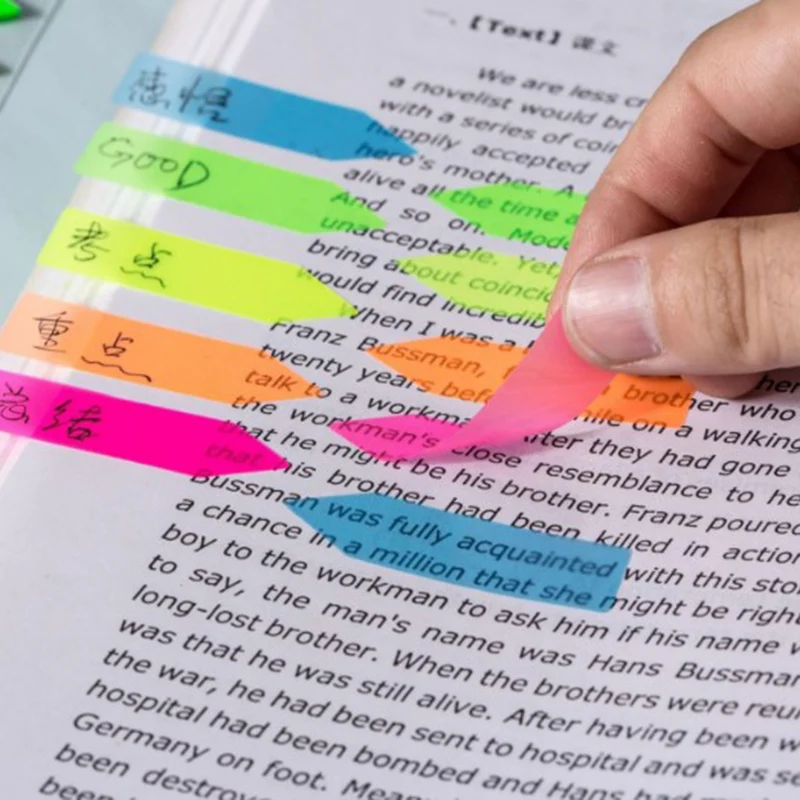 一、【Text】课文
We are less
a novelist would
with a series of
happily accepted
hero's mother. A
alive all the time
And so on.
unacceptable. Yet,
bring about
would find
When I was a
Franz Bussman, her
twenty years brother who
talk to a while on a walking
the workman's After they had gone
that he might close resemblance to
that his be his brother. Franz poured
Bussman brother had been killed in action
a chance was fully acquainted with this
boy in a million that she might be
to the workman to ask him if his name
to say, the man's name was Hans Bussman
long-lost brother. When the brothers were
was that he was still alive. After having been
the war, he had been sent to hospital and was
hospital had been bombed and Hans had
Germany on foot.
been
been
感悟
GOOD
考点
重点
总结